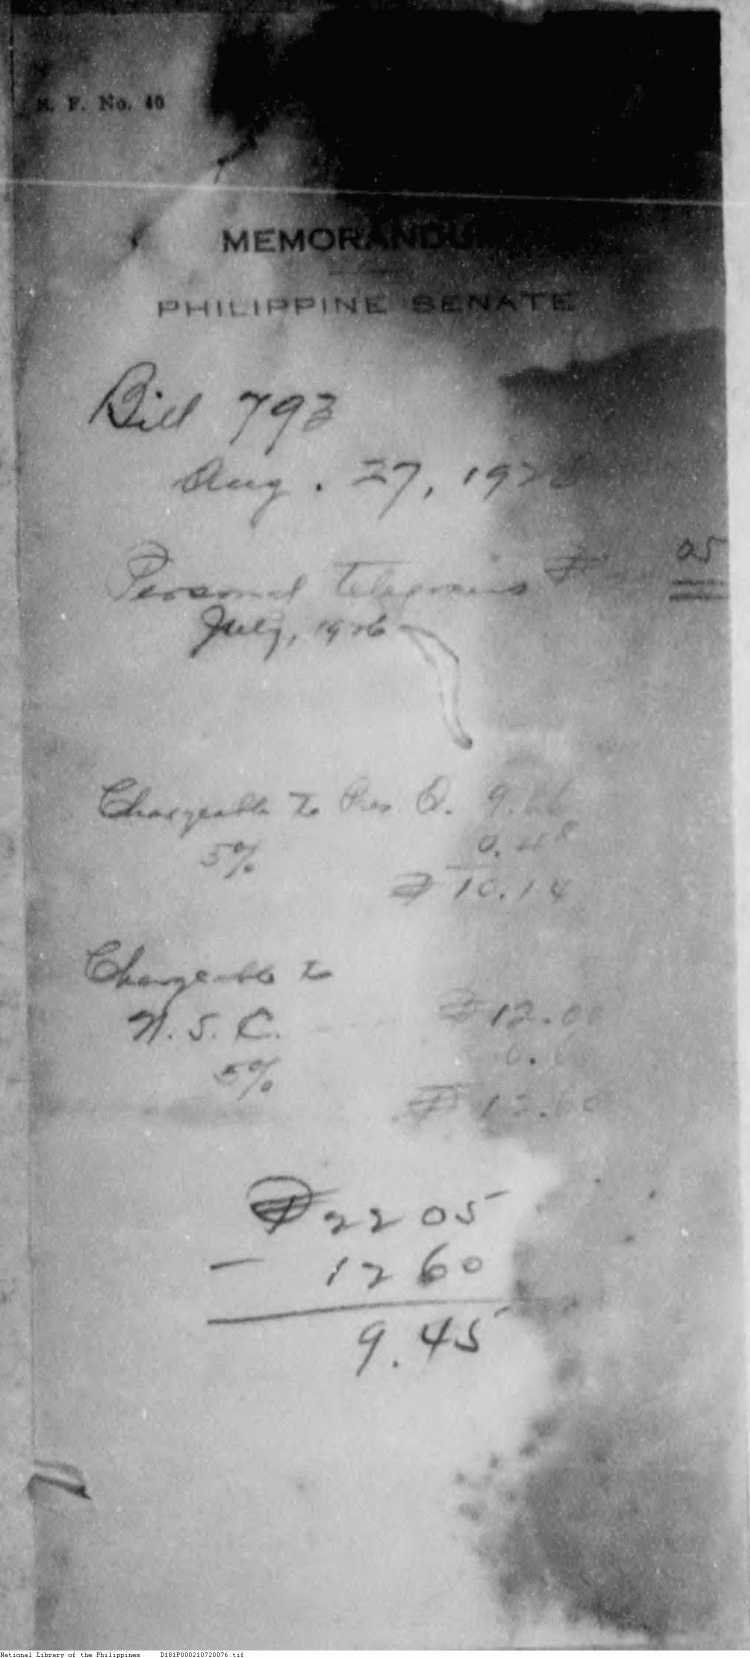 S. F. No. 40
MEMORANDUM
PHILIPPINE SENATE
Bill 793
Aug. 27, 1928
Personal telegrams ₱ 05
July, 1926
Chargeable to Pres. Q. 9.66
5% 0.48
₱ 10.14
Chargeable to
N. S. C. ₱ 12.00
5% 0.60
₱ 12.60
₱ 22 05
- 12 60
9.45
National Library of the Philippines D181P000210720076.tif